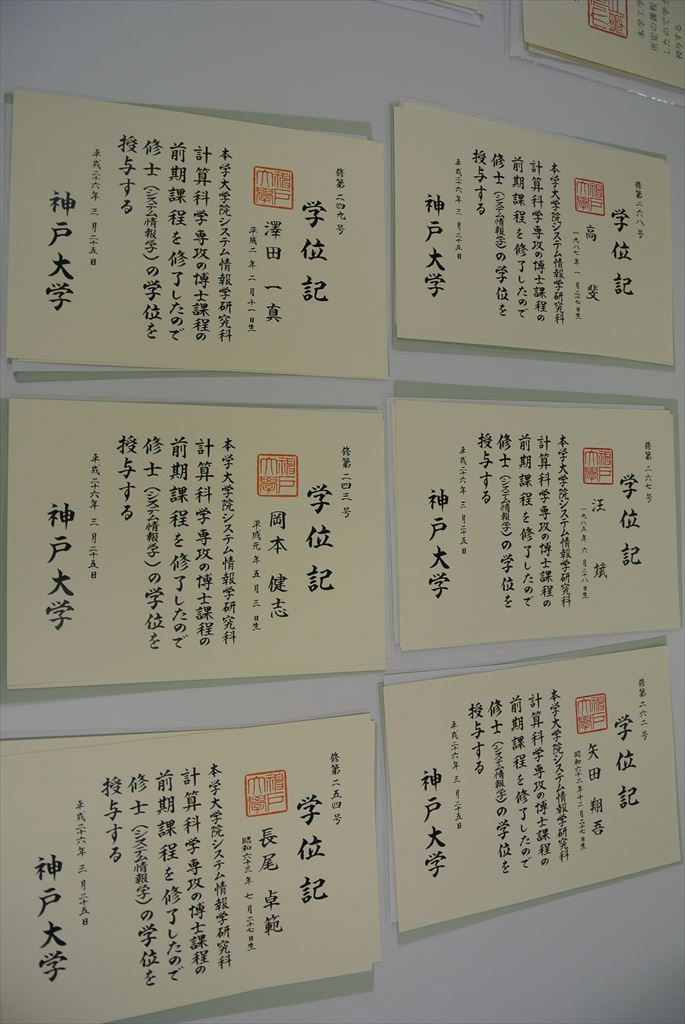 修第二四九号
学位記
澤田 一真
平成二年二月十一日生
本学大学院システム情報学研究科
計算科学専攻の博士課程の
前期課程を修了したので
修士（システム情報学）の学位を
授与する
平成二十六年 三月二十五日
神戸大学
修第二六八号
学位記
高 斐
一九八七年 一月二七日生
本学大学院システム情報学研究科
計算科学専攻の博士課程の
前期課程を修了したので
修士（システム情報学）の学位を
授与する
平成二十六年 三月二十五日
神戸大学
修第二四三号
学位記
岡本 健志
平成元年五月三日生
本学大学院システム情報学研究科
計算科学専攻の博士課程の
前期課程を修了したので
修士（システム情報学）の学位を
授与する
平成二十六年 三月二十五日
神戸大学
修第二六七号
学位記
汪 斌
一九八五年 六月二八日生
本学大学院システム情報学研究科
計算科学専攻の博士課程の
前期課程を修了したので
修士（システム情報学）の学位を
授与する
平成二十六年 三月二十五日
神戸大学
修第二五四号
学位記
長尾 卓範
昭和六十三年 七月二十七日生
本学大学院システム情報学研究科
計算科学専攻の博士課程の
前期課程を修了したので
修士（システム情報学）の学位を
授与する
平成二十六年 三月二十五日
神戸大学
修第二六二号
学位記
矢田 翔吾
昭和六十二年十二月二十七日生
本学大学院システム情報学研究科
計算科学専攻の博士課程の
前期課程を修了したので
修士（システム情報学）の学位を
授与する
平成二十六年 三月二十五日
神戸大学
本学工学
所定の課程
したので学
授与する